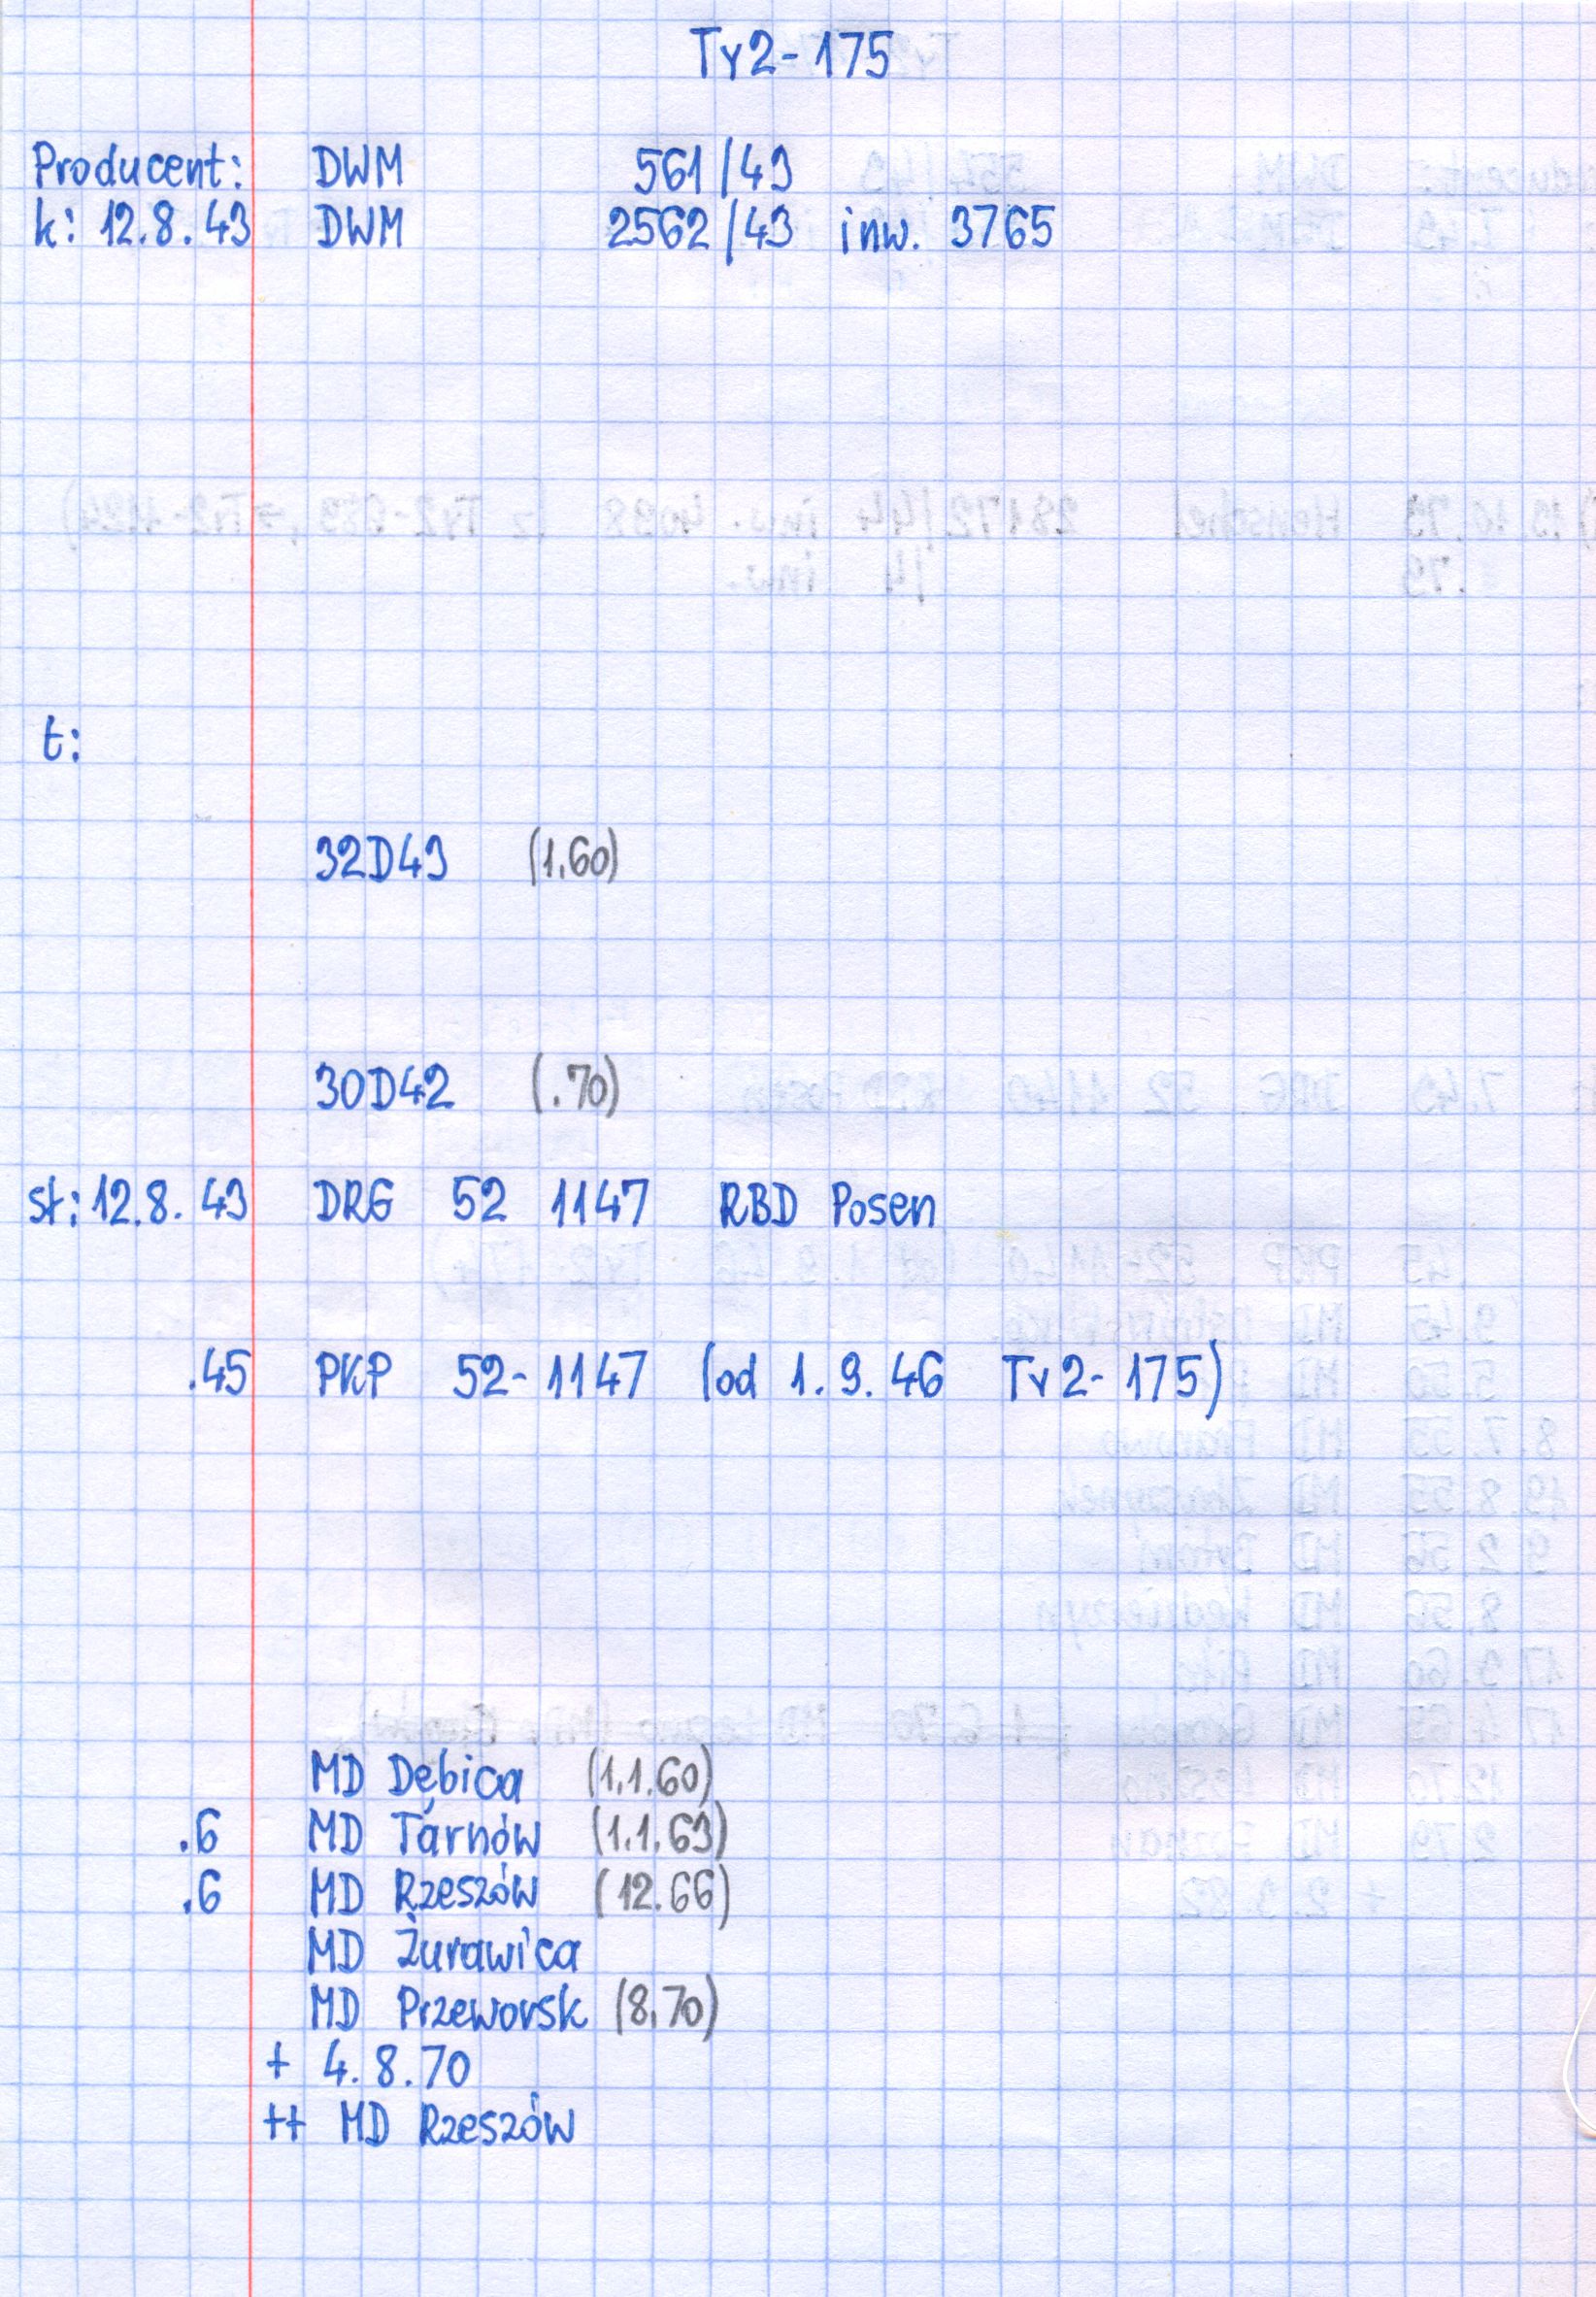 Ty2-175
Producent: DWM 561/43
k: 12.8.43 DWM 2562/43 inw. 3765
t:
32D43 (1.60)
30D42 (.70)
st: 12.8.43 DRG 52 1147 RBD Posen
.45 PKP 52-1147 (od 1.9.46 Ty2-175)
MD Dębica (1.1.60)
.6 MD Tarnów (1.1.63)
.6 MD Rzeszów (12.66)
MD Żurawica
MD Przeworsk (8.70)
+ 4.8.70
++ MD Rzeszów